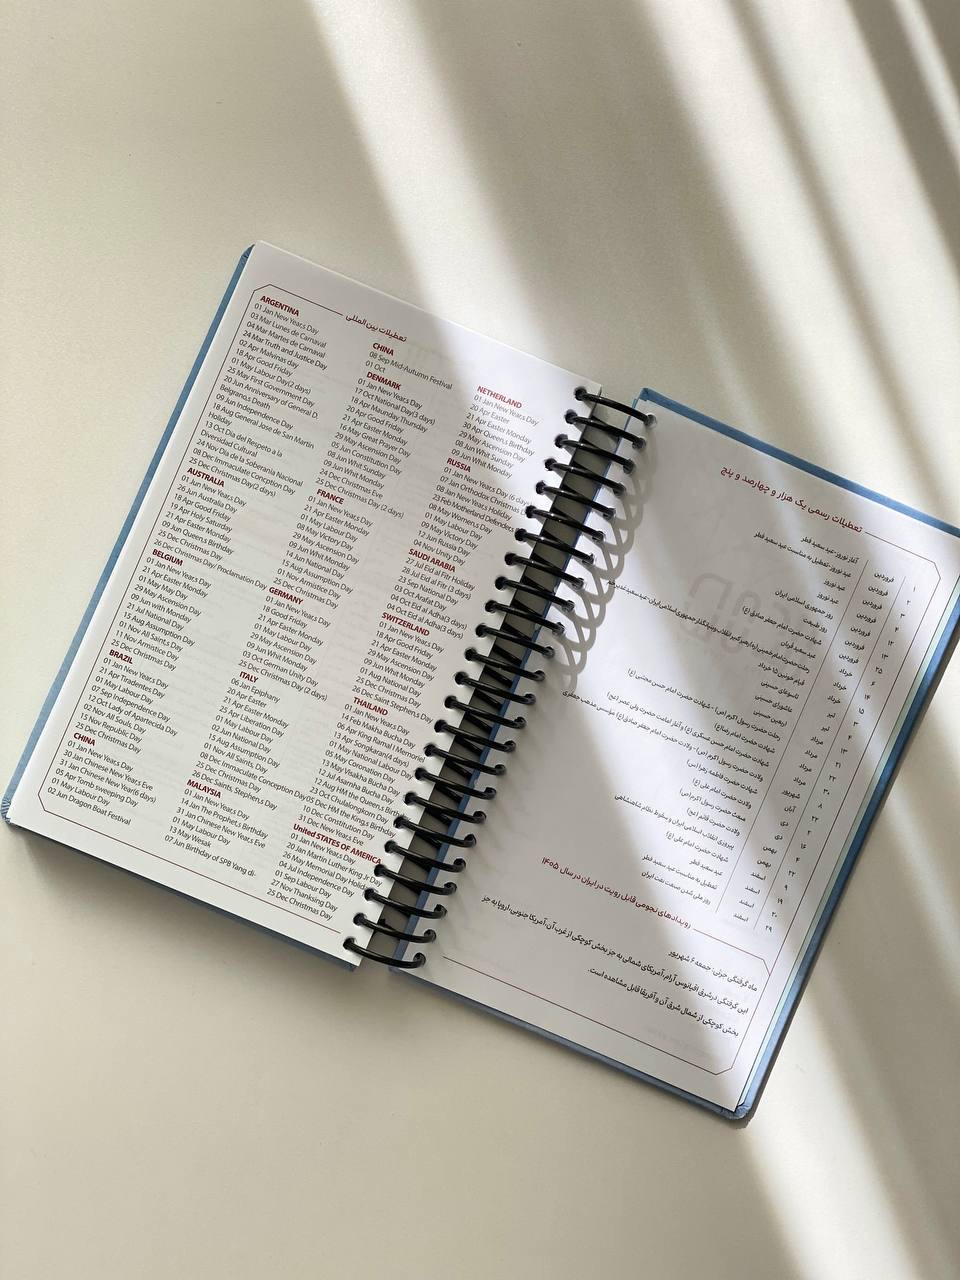 تعطیلات بین المللی
ARGENTINA
01 Jan New Year,s Day
03 Mar Lunes de Carnaval
04 Mar Martes de Carnaval
24 Mar Truth and Justice Day
02 Apr Malvinas day
18 Apr Good Friday
01 May Labour Day(2 days)
25 May First Government Day
20 Jun Anniversary of General D.
Belgrano,s Death
09 Jun Independence Day
18 Aug General Jose de San Martin
Holiday
13 Oct Dia del Respeto a la
Diversidad Cultural
24 Nov Dia de la Soberania Nacional
08 Dec Immaculate Conception Day
25 Dec Christmas Day(2 days)
AUSTRALIA
01 Jan New Year,s Day
26 Jun Australia Day
18 Apr Good Friday
19 Apr Holy Saturday
21 Apr Easter Monday
09 Jun Queen,s Birthday
25 Dec Christmas Day
26 Dec Christmas Day/ Proclamation Day
BELGIUM
01 Jan New Year,s Day
21 Apr Easter Monday
01 May May Day
29 May Ascension Day
09 Jun with Monday
21 Jul National Day
15 Aug Assumption Day
01 Nov All Saints Day
11 Nov Armistice Day
25 Dec Christmas Day
BRAZIL
01 Jan New Year,s Day
21 Apr Tiradentes Day
01 May Labour Day
07 Sep Independence Day
12 Oct Lady of Aparecida Day
02 Nov All Souls, Day
15 Nov Republic Day
25 Dec Christmas Day
CHINA
01 Jan New Year,s Day
30 Jan Chinese New Year,s Eve
31 Jan Chinese New Year(6 days)
05 Apr Tomb sweeping Day
01 May Labour Day
02 Jun Dragon Boat Festival
CHINA
08 Sep Mid-Autumn Festival
01 Oct
DENMARK
01 Jan New Year,s Day
17 Oct National Day(3 days)
18 Apr Maunday Thursday
20 Apr Good Friday
21 Apr Easter Monday
16 May Great Prayer Day
29 May Ascension Day
05 Jun Constitution Day
08 Jun Whit Sunday
09 Jun Whit Monday
24 Dec Christmas Eve
25 Dec Christmas Day (2 days)
FRANCE
01 Jan New Year,s Day
21 Apr Easter Monday
01 May Labour Day
08 May Victory Day
29 May Ascension Day
09 Jun Whit Monday
14 Jun National Day
15 Aug Assumption Day
01 Nov Armistice Day
25 Dec Christmas Day
GERMANY
01 Jan New Year,s Day
18 Good Friday
21 Apr Easter Monday
01 May Labour Day
29 May Ascension Day
09 Jun Whit Monday
03 Oct German Unity Day
25 Dec Christmas Day (2 days)
ITALY
06 Jan Epiphany
20 Apr Easter
21 Apr Easter Monday
25 Apr Liberation Day
01 May Labour Day
02 Jun National Day
15 Aug Assumption Day
01 Nov All Saints, Day
08 Dec Immaculate Conception Day
25 Dec Christmas Day
26 Dec Saints, Stephen,s Day
MALAYSIA
01 Jan New Year,s Day
14 Jan The Prophet,s Birthday
31 Jan Chinese New Year,s Eve
01 May Labour Day
13 May Wesak
07 Jun Birthday of SPB Yang di-
NETHERLAND
01 Jan New Year,s Day
20 Apr Easter
21 Apr Easter Monday
30 Apr Queen,s Birthday
29 May Ascension Day
08 Jun Whit Sunday
09 Jun Whit Monday
RUSSIA
01 Jan New Years Day (6 days)
07 Jan Orthodox Christmas
08 Jan New Years Holiday
23 Feb Motherland Defenders
08 May Women,s Day
01 May Labour Day
09 May Victory Day
12 Jun Russia Day
04 Nov Unity Day
SAUDI ARABIA
27 Jul Eid al Fitr Holiday
28 Jul Eid al Fitr (3 days)
23 Sep National Day
03 Oct Arafat Day
04 Oct Eid al Adha(3 days)
04 Oct Eid al Adha(3 days)
SWITZERLAND
01 Jan New Year,s Day
18 Apr Good Friday
21 Apr Easter Monday
29 May Ascension Day
09 Jun Whit Monday
01 Aug National Day
25 Dec Christmas Day
26 Dec Saint Stephen,s Day
THAILAND
01 Jan New Year,s Day
14 Feb Makha Bucha Day
06 Apr King Rama1 Memorie
13 Apr Songkaran(4 days)
01 May National Labour Day
05 May Coronation Day
13 May Visakha Bucha Day
12 Jul Asamha Bucha Day
12 Aug HM the Queen,s Birthday
23 Oct Chulalongkorn Day
05 Dec HM the King,s Birthday
10 Dec Constitution Day
31 Dec New Years Eve
United STATES OF AMERICA
01 Jan New Year,s Day
20 Jan Martin Luther King Jr Day
26 May Memorial Day Holiday
04 Jul Independence Day
01 Sep Labour Day
27 Nov Thanksing Day
25 Dec Christmas Day
تعطیلات رسمی یک هزار و چهارصد و پنج
۱ فروردین آغاز نوروز-عید سعید فطر
۲ فروردین عید نوروز-تعطیل به مناسبت عید سعید فطر
۳ فروردین عید نوروز
۴ فروردین عید نوروز
۱۲ فروردین روز جمهوری اسلامی ایران
۱۳ فروردین روز طبیعت
۲۵ فروردین شهادت حضرت امام جعفر صادق (ع)
۶ خرداد عید سعید قربان
۱۴ خرداد رحلت حضرت امام خمینی
۱۵ خرداد قیام خونین ۱۵ خرداد
۳ تیر تاسوعای حسینی
۴ تیر عاشورای حسینی
۱۳ مرداد اربعین حسینی
۲۱ مرداد رحلت حضرت رسول اکرم (ص) - شهادت حضرت امام حسن مجتبی (ع)
۲۲ مرداد شهادت حضرت امام رضا(ع)
۳۰ مرداد شهادت حضرت امام حسن عسکری (ع) و آغاز امامت حضرت ولی عصر (عج)
۸ شهریور ولادت حضرت رسول اکرم (ص) - ولادت حضرت امام جعفر صادق (ع) مؤسس مذهب جعفری
۲۲ آبان شهادت حضرت فاطمه زهرا (س)
۲ دی ولادت حضرت امام علی (ع)
۱۶ دی مبعث حضرت رسول اکرم (ص)
۴ بهمن ولادت حضرت قائم (عج)
۲۲ بهمن پیروزی انقلاب اسلامی ایران و سقوط نظام شاهنشاهی
۹ اسفند شهادت حضرت امام علی (ع)
۱۹ اسفند عید سعید فطر
۲۰ اسفند تعطیل به مناسبت عید سعید فطر
۲۹ اسفند روز ملی شدن صنعت نفت ایران
رویدادهای نجومی قابل رویت در ایران در سال ۱۴۰۵
ماه گرفتگی جزئی: جمعه ۶ شهریور
این گرفتگی در شرق اقیانوس آرام، آمریکای شمالی به جز بخش کوچکی از غرب آن، آمریکا جنوبی، اروپا به جز
بخش کوچکی از شمال شرق آن و آفریقا قابل مشاهده است.